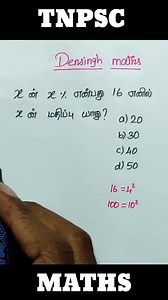 TNPSC
Densingh maths
x ன் x % என்பது 16 எனில்
x ன் மதிப்பு யாது?
a) 20
b) 30
c) 40
d) 50
16 = 4²
100 = 10²
MATHS